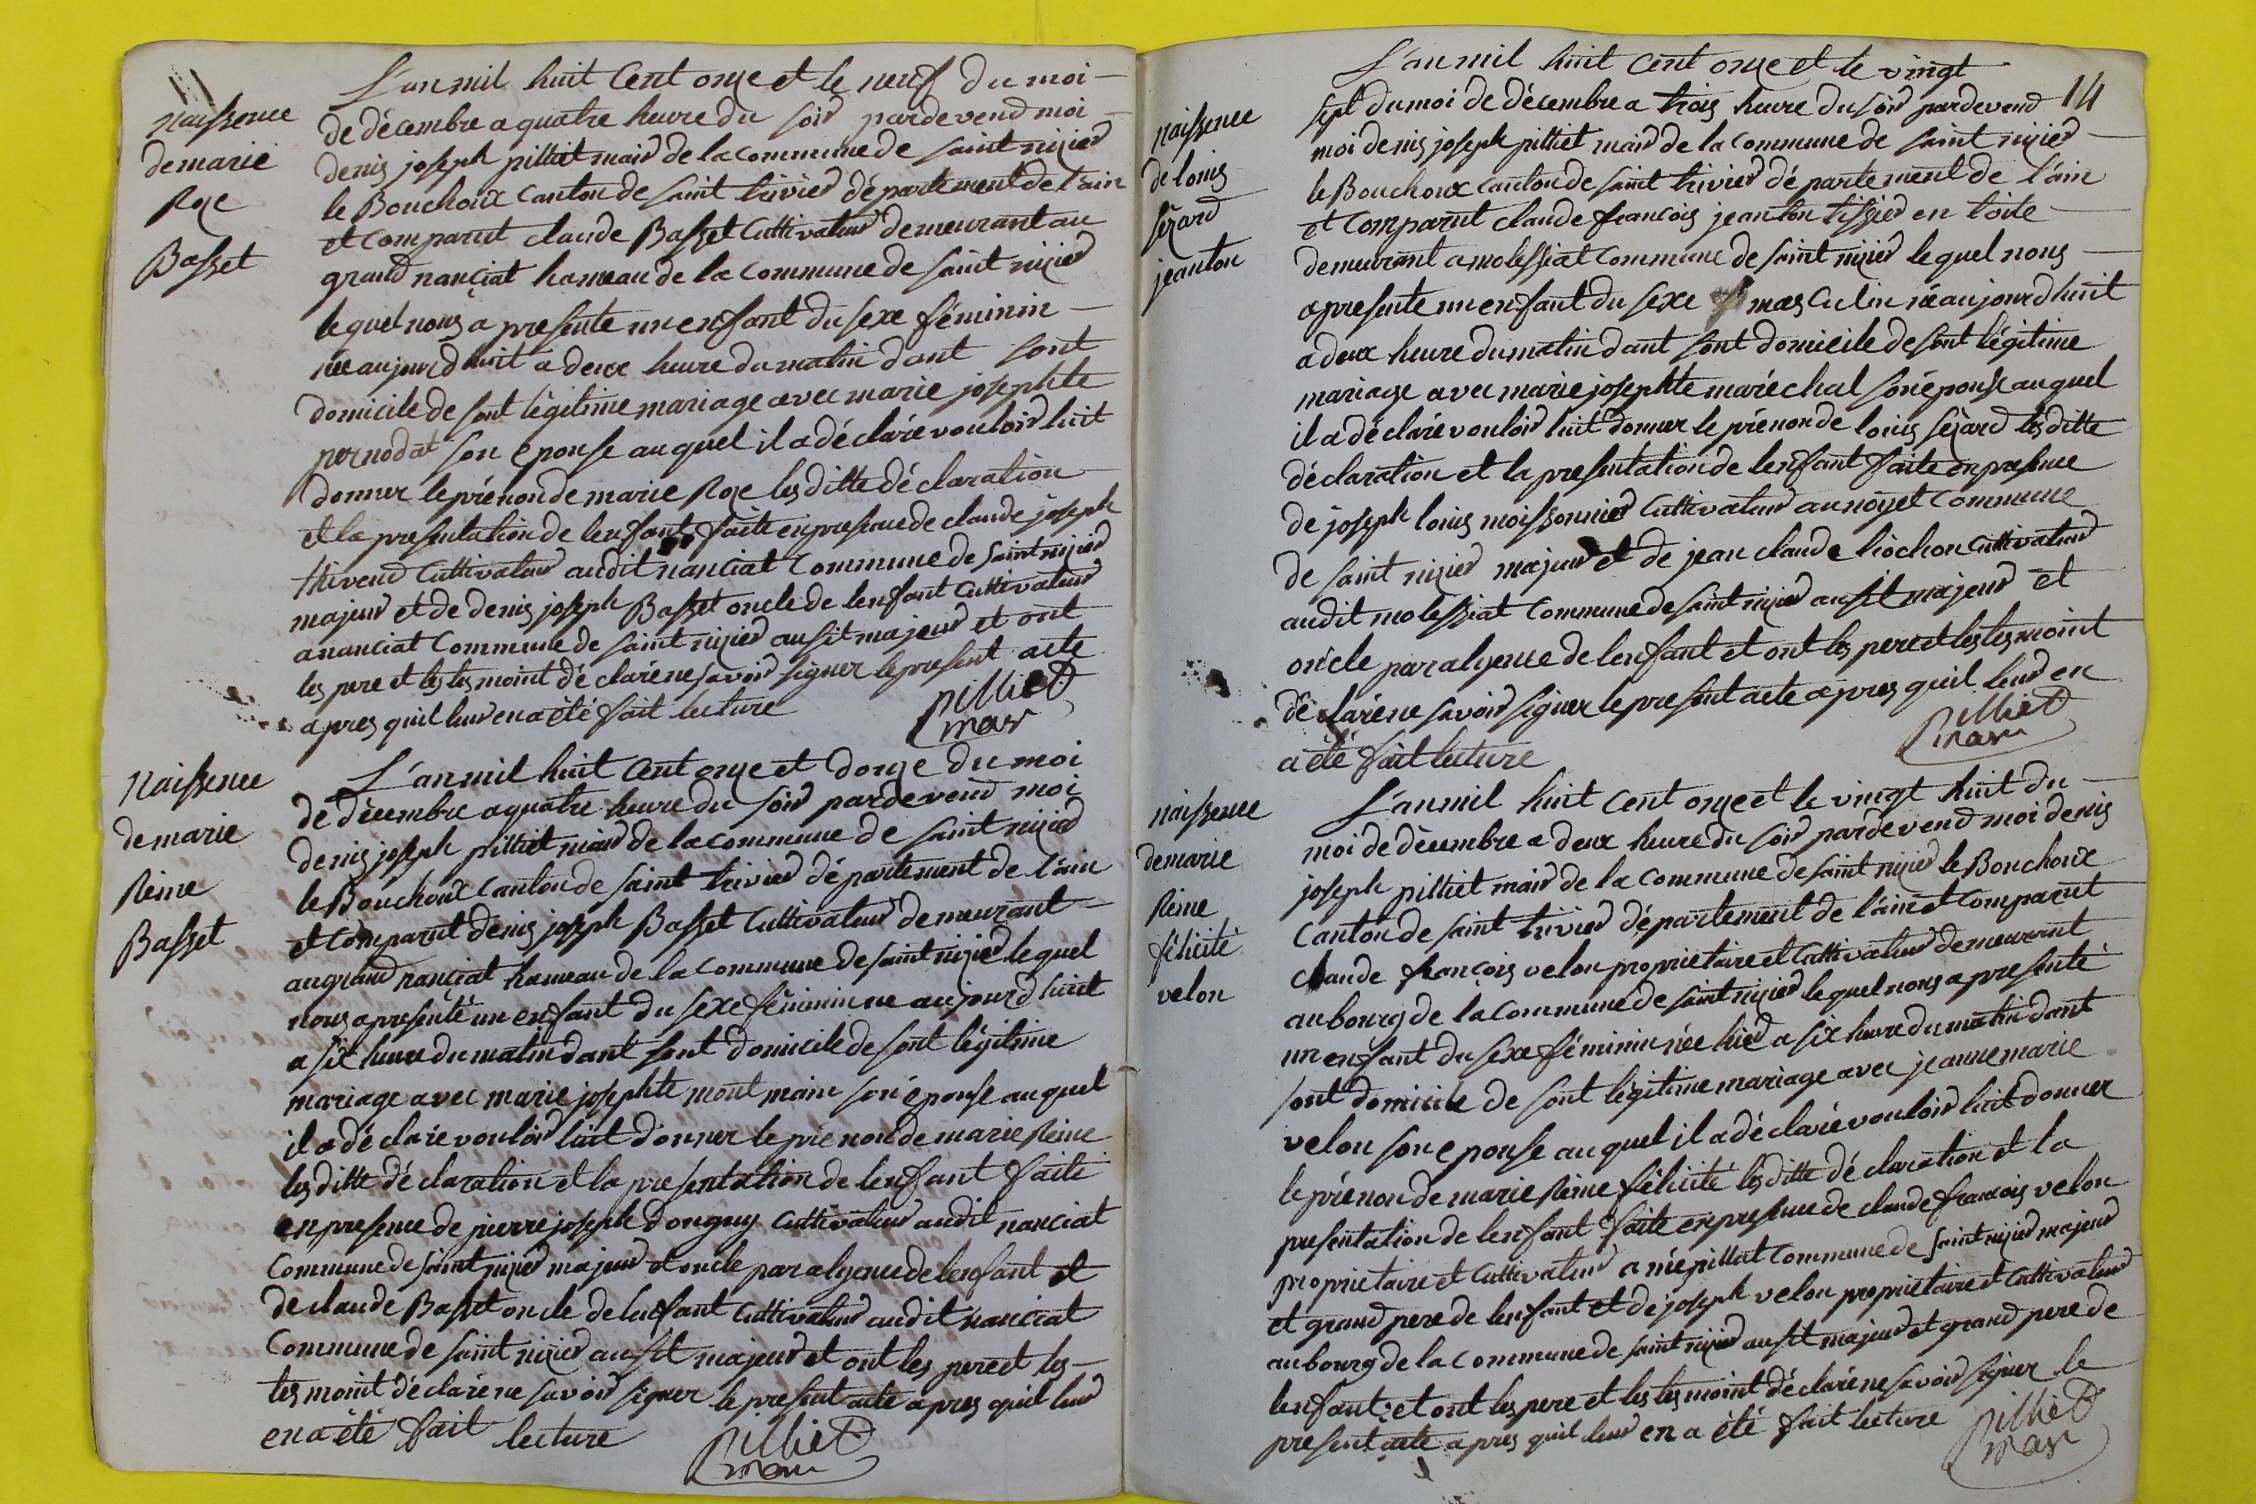 naissence
de marie
Roze
Basset
L'an mil huit Cent onze et le neuf du moi
de décembre a quatre heure du soir pardevend moi
denis joseph pilliet mair de la commune de saint nizier
le Bouchoux canton de saint trivier département de l'ain
et comparut claude Basset Cultivateur demeurant au
grand nanciat hameau de la commune de saint nizier
lequel nous a presente un enfant du sexe féminin
née aujourd huit a deux heure du matin dant sont
domicile de sont légitime mariage avec marie josephte
pernodat son eponse auquel il a déclaré vouloir luit
donner le prénon de marie Roze les ditte déclaration
et la presentation de lenfant faite en presence de claude joseph
thevend Cultivateur audit nanciat Commune de saint nizier
majeur et de denis joseph Basset oncle de lenfant Cultivateur
a nanciat Commune de saint nizier ausit majeur et ont
les pere et les tesmoint déclaré ne savoir signer le present acte
apres quil leur en a été fait lecture
pilliet
mair
naissence
de marie
Reine
Basset
L'an mil huit Cent onze et douze du moi
de décembre a quatre heure du soir pardevend moi
denis joseph pilliet mair de la commune de saint nizier
le Bouchoux canton de saint trivier département de l'ain
et comparut denis joseph Basset Cultivateur demeurant
au grand nanciat hameau de la commune de saint nizier lequel
nous a presenté un enfant du sexe féminin ne aujourd huit
a six heure du matin dant sont domicile de sont légitime
mariage avec marie josephte mont main son éponse auquel
il a déclaré vouloir luit donner le prénon de marie Reine
les ditte déclaration et la presentation de lenfant faite
en presence de pierre joseph donguy Cultivateur audit nanciat
Commune de saint nizier majeur et oncle par alyence de lenfant et
de claude Basset oncle de lenfant Cultivateur audit nanciat
Commune de saint nizier ausit majeur et ont les pere et les
tes moint déclaré ne savoir signer le present acte apres quil leur
en a été fait lecture
pilliet
mair
14
naissence
de louis
sézard
jeanton
L'an mil huit Cent onze et le vingt
sept du moi de décembre a trois heure du soir pardevend
moi denis joseph pilliet mair de la commune de saint nizier
le Bouchoux canton de saint trivier département de l'ain
et comparut claude françois jeanton tissier en toile
demeurant a molessiat commune de saint nizier lequel nous
a presente un enfant du sexe masculin né aujourd huit
a deux heure du matin dant sont domicile de sont légitime
mariage avec marie josephte maréchal son éponse auquel
il a déclaré vouloir luit donner le prénon de louis sézard les ditte
déclaration et la presentation de lenfant faite en presence
de joseph louis moissonnier Cultivateur au noyet commune
de saint nizier majeur et de jean claude liochon Cultivateur
audit molessiat commune de saint nizier ausit majeur et
oncle par alyence de lenfant et ont les pere et les tesmoint
déclaré ne savoir signer le present acte apres quil leur en
a été fait lecture
pilliet
mair
naissence
de marie
Reine
félicité
velon
L'an mil huit Cent onze et le vingt huit du
moi de décembre a deux heure du soir pardevend moi denis
joseph pilliet mair de la commune de saint nizier le Bouchoux
canton de saint trivier département de l'ain et comparut
claude françois velon proprietaire et Cultivateur demeurant
au bourg de la commune de saint nizier lequel nous a presenté
un enfant du sexe féminin née hier a six heure du matin dant
sont domicile de sont légitime mariage avec jeanne marie
velon son eponse auquel il a déclaré vouloir luit donner
le prénon de marie Reine félicité les ditte déclaration et la
presentation de lenfant faite en presence de claude francois velon
proprietaire et Cultivateur a mépillat commune de saint nizier majeur
et grand pere de lenfant et de joseph velon proprietaire et Cultivateur
au bourg de la commune de saint nizier ausit majeur et grand pere de
lenfant et ont les pere et les tesmoint déclaré ne savoir signer le
present acte apres quil leur en a été fait lecture
pilliet
mair